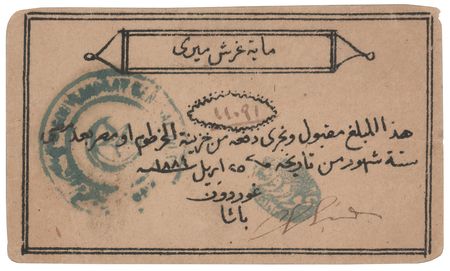 ماية غرش ميرى
١١٠٩١
هذا المبلغ مقبول وتجرى دفعه من خزينة الخرطوم او مصر بعد مضى
ستة شهور من تاريخه ٢٥ ابريل ١٨٨٤
غوردون
باشا